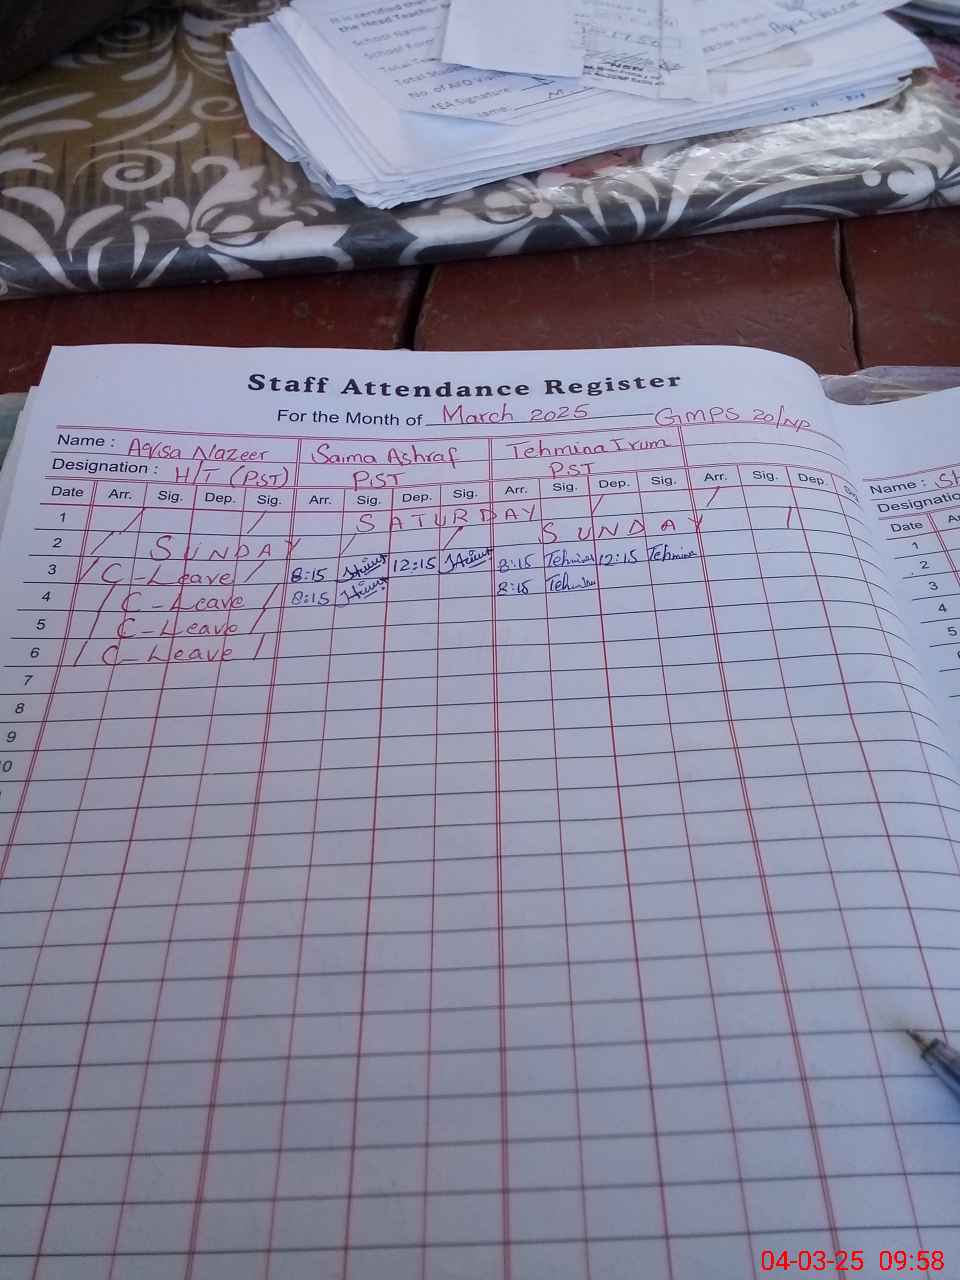 It is certified that
the Head Teacher
School Name
No. of AEO Visit
YEA Signature:
Name:
Staff Attendance Register
For the Month of March 2025 GMPS 20/NP
Name : Aqisa Nazeer Saima Ashraf Tehmina Irum
Designation : H/T (PST) PST PST
Date Arr. Sig. Dep. Sig. Arr. Sig. Dep. Sig. Arr. Sig. Dep. Sig. Arr. Sig. Dep. Sig
1 SATURDAY
2 SUNDAY SUNDAY
3 C-Leave 8:15 12:15 8:15 Tehmina 12:15 Tehmina
4 C-Leave 8:15 8:15 Tehmina
5 C-Leave
6 C-Leave
7
8
9
10
Name : Sh
Designatio
Date A
1
2
3
4
5
04-03-25 09:58